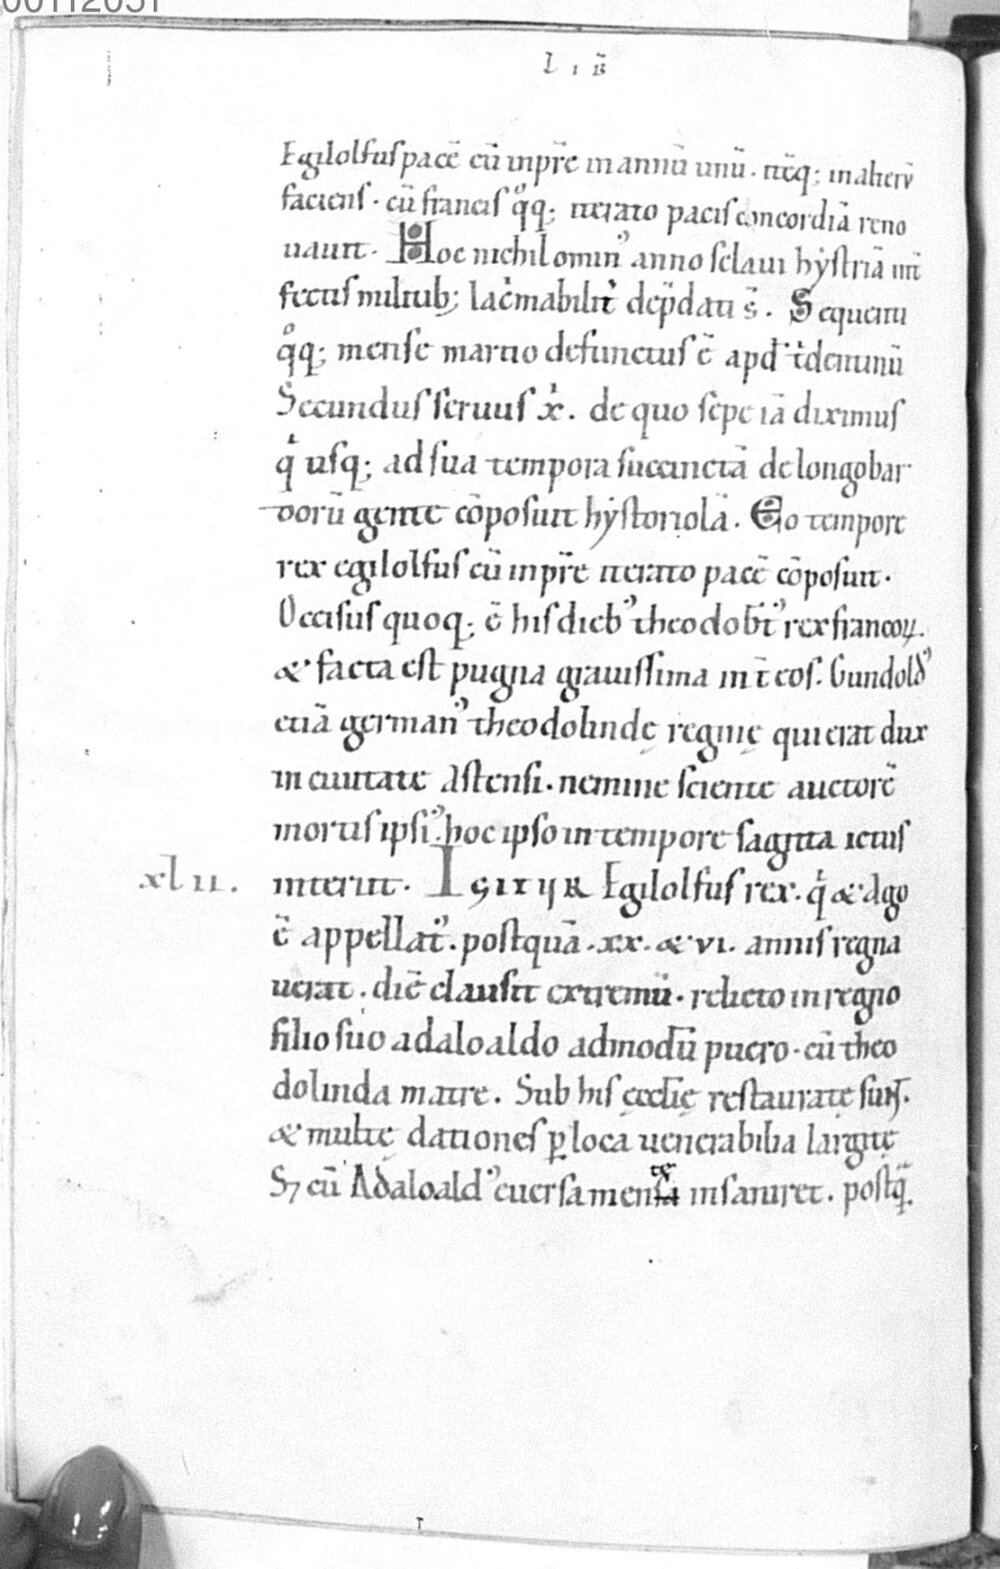 00112051
LIB̃
Egilolfus pacē cū inpr̄e in annū unū. itēq; in alterū
faciens. cū francis qͦq; iterato pacis concordiā reno
uauit. Hoc nichilominꝰ anno sclaui hẏstriā int̄
fectis militib; lac̄mabilit̉ dep̄dati s̄. Sequenti
qͦq; mense martio defunctus ē apd̉ t̉dentinū
Secundus seruus xͥ. de quo sepe iā diximus
qͥ usq; ad sua tempora succinctā de longobar
dorū gente cōposuit hẏstoriolā. Eo tempore
rex egilolfus cū inpr̄e iterato pacē cōposuit.
Occisus quoq; ē his diebꝰ theodob̉tꝰ rex francoꝝ.
& facta est pugna grauissima int̄ eos. Gundoldꝰ
etiā germanꝰ theodolindę reginę qui erat dux
in ciuitate Astensi. nemine sciente auctorē
mortis ipsiꝰ. hoc ipso in tempore sagitta ictus
interiit. IGITUR Egilolfus rex. qͥ & Ago
xlii.
ē appellatꝰ. postquā .xx. & vi. annis regna
uerat. diē clausit extremū. relicto in regno
filio suo adaloaldo admodū puero. cū theo
dolinda matre. Sub his ęcclīę restauratę sūt.
& multę dationes ꝑ loca uenerabilia largitę
S7 cū Adaloaldꝰ euersa mente insaniret. postq̄.